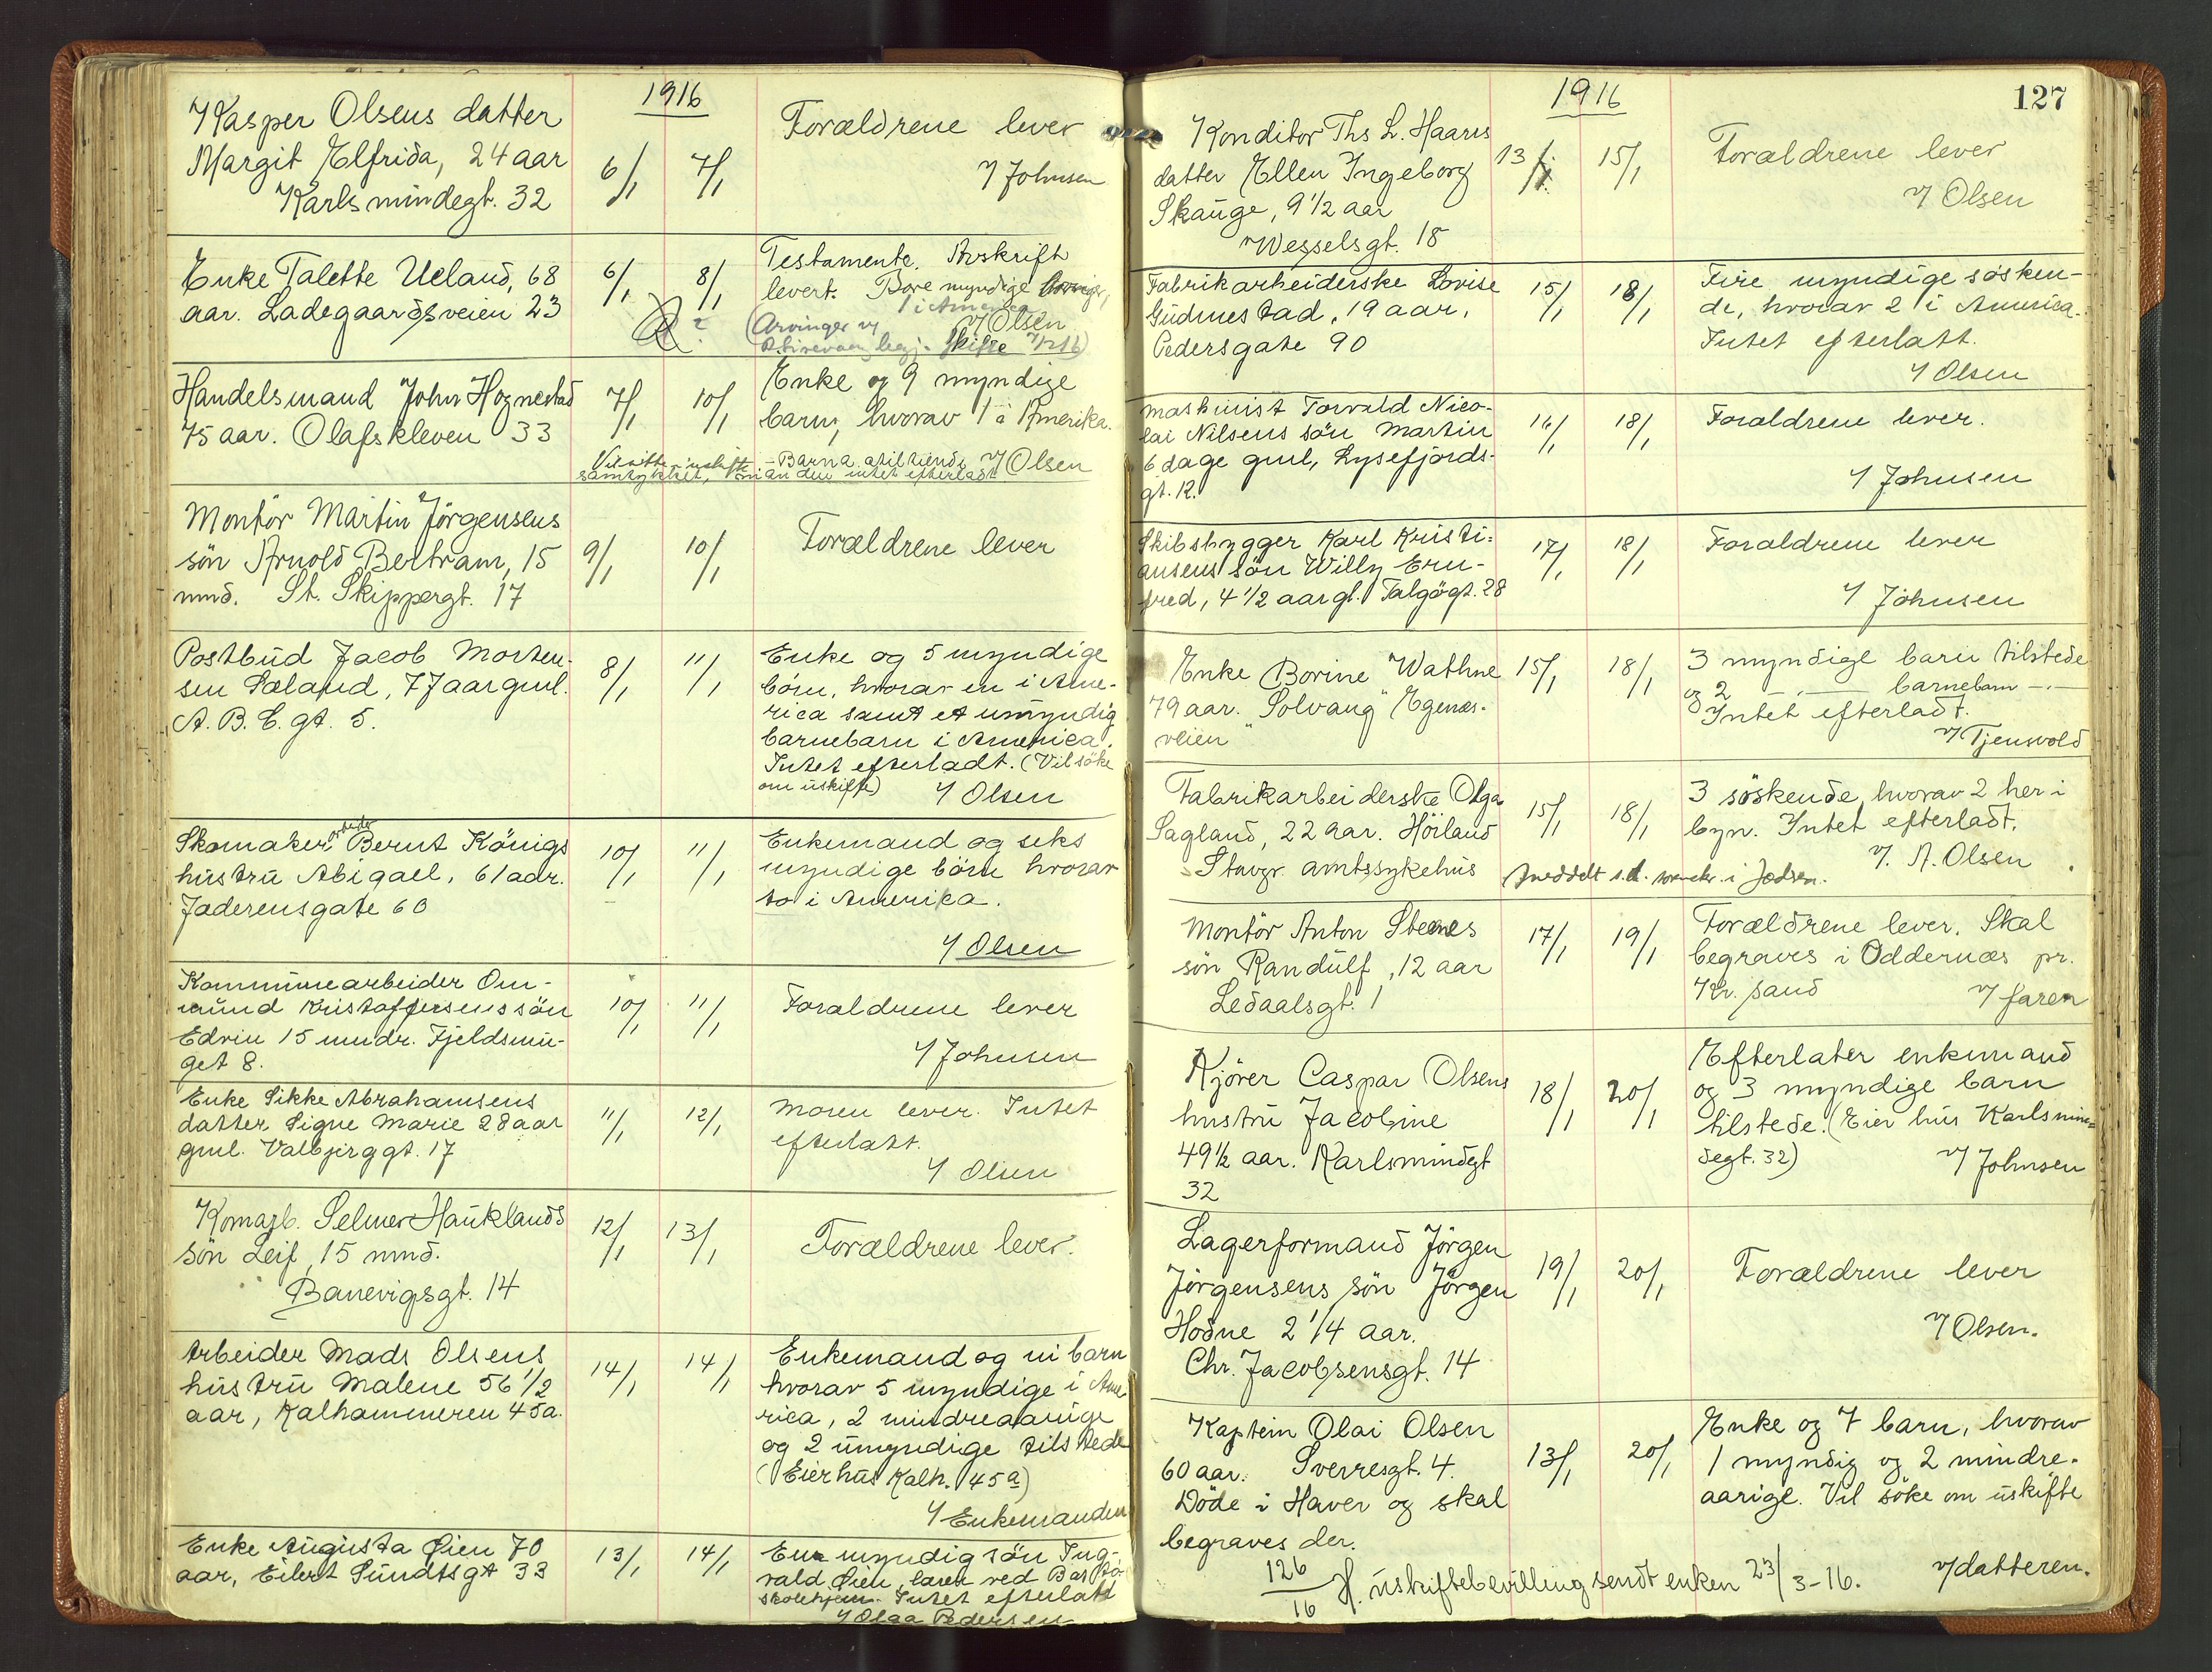 1916
Kasper Olsens datter
Margit Elfrida, 24 aar
Karlsmindegt. 32
6/1 7/1
Forældrene lever
V Johnsen
Enke Talette Ueland, 68
aar. Ladegaardsveien 23
6/1 8/1
Testamente. Avskrift
levert. Bare myndige
1 i Amerika
V Olsen
(Arvinger
Skifte
Handelsmand John Hognestad
75 aar. Olafskleven 33
7/1 10/1
Enke og 9 myndige
barn, hvorav 1 i Amerika.
Vil sitte i uskifte - Barna
V Olsen
samtykket, intet efterladt
Montör Martin Jörgensens
sön Arnold Bertram, 15
mnd. St. Skippergt. 17
9/1 10/1
Forældrene lever
Postbud Jacob Morten-
sen Sæland, 77 aar gml.
A. B. C. gt. 5.
8/1 11/1
Enke og 5 myndige
börn, hvorav en i Ame-
rica samt et umyndig
barnebarn i America.
Intet efterladt. (Vil söke
om uskifte) V Olsen
Skomaker arbeider Bernt Königs
hustru Abigael, 61 aar.
Jæderensgate 60
10/1 11/1
Enkemand og seks
myndige börn hvorav
to i America.
V Olsen
Kommunearbeider Om-
mund Kristoffersens sön
Edvin 15 mndr. Fjeldsmu-
get 8.
10/1 11/1
Forældrene lever
V Johnsen
Enke Sikke Abrahamsens
datter Signe Marie 28 aar
gml. Valbjerggt. 17
11/1 12/1
Moren lever. Intet
efterlatt.
V Olsen
Komarb. Selmer Hauklands
sön Leif, 15 mnd.
Banevigsgt. 14
12/1 13/1
Forældrene lever.
Arbeider Mads Olsens
hustru Malene 56 1/2
aar, Kalhammeren 45a.
14/1 14/1
Enkemand og ni barn
hvorav 5 myndige i Ame
rica, 2 mindreaarige
og 2 umyndige tilstede
(Eier hus Kalh. 45a)
V Enkemanden
Enke Augusta Øien 70
aar, Eilert Sundtsgt 33
13/1 14/1
En myndig sön Ing-
vald Øien, lærer ved
skolehjem. Intet efterlatt
V Olga Pedersen
1916
127
Konditor Ths L. Haarrs
datter Ellen Ingeborg
Skauge, 9 1/2 aar
Wesselsgt. 18
13/1 15/1
Forældrene lever
V Olsen
Fabrikarbeiderske Lovise
Gudmestad, 19 aar,
Pedersgate 90
15/1 18/1
Fire myndige sösken-
de, hvorav 2 i America.
Intet efterlatt.
V Olsen
Maskinist Torvald Nico-
lai Nilsens sön Martin
6 dage gml, Lysefjords-
gt. 12.
16/1 18/1
Forældrene lever.
V Johnsen
Skibsbygger Karl Kristi-
ansens sön Willy Ern-
fred, 4 1/2 aar gl. Talgögt. 28
17/1 18/1
Forældrene lever
V Johnsen
Enke Borine Wathne
79 aar. "Solvang" Egenæs-
veien
15/1 18/1
3 myndige barn tilstede
og 2 —"— barnebarn —"—
Intet efterladt.
V Tjensvold
Fabrikarbeiderske Olga
Sagland, 22 aar. Höiland
Stavgr. amtssykehus
15/1 18/1
3 söskende, hvorav 2 her i
byn. Intet efterladt.
V. A. Olsen
meddelt s.d. i Jædren.
Montör Anton Steenes
sön Randulf, 12 aar
Ledaalsgt. 1
17/1 19/1
Forældrene lever. Skal
begraves i Oddernæs pr.
Kr. sand V faren
Kjörer Caspar Olsens
hustru Jacobine
49 1/2 aar. Karlsmindegt
32
18/1 20/1
Efterlater enkemand
og 3 myndige barn
tilstede. (Eier hus Karlsmin-
degt. 32)
V Johnsen
Lagerformand Jörgen
Jörgensens sön Jörgen
Hodne 2 1/4 aar.
Chr. Jacobsensgt. 14
19/1 20/1
Forældrene lever
V Olsen.
Kaptein Olai Olsen
60 aar. Sverresgt. 4.
Döde i Haver og skal
begraves der.
13/1 20/1
Enke og 7 barn, hvorav
1 myndig og 2 mindre-
aarige. Vil söke om uskifte
V datteren.
126/16 H. uskiftebevilling sendt enken 23/3-16.